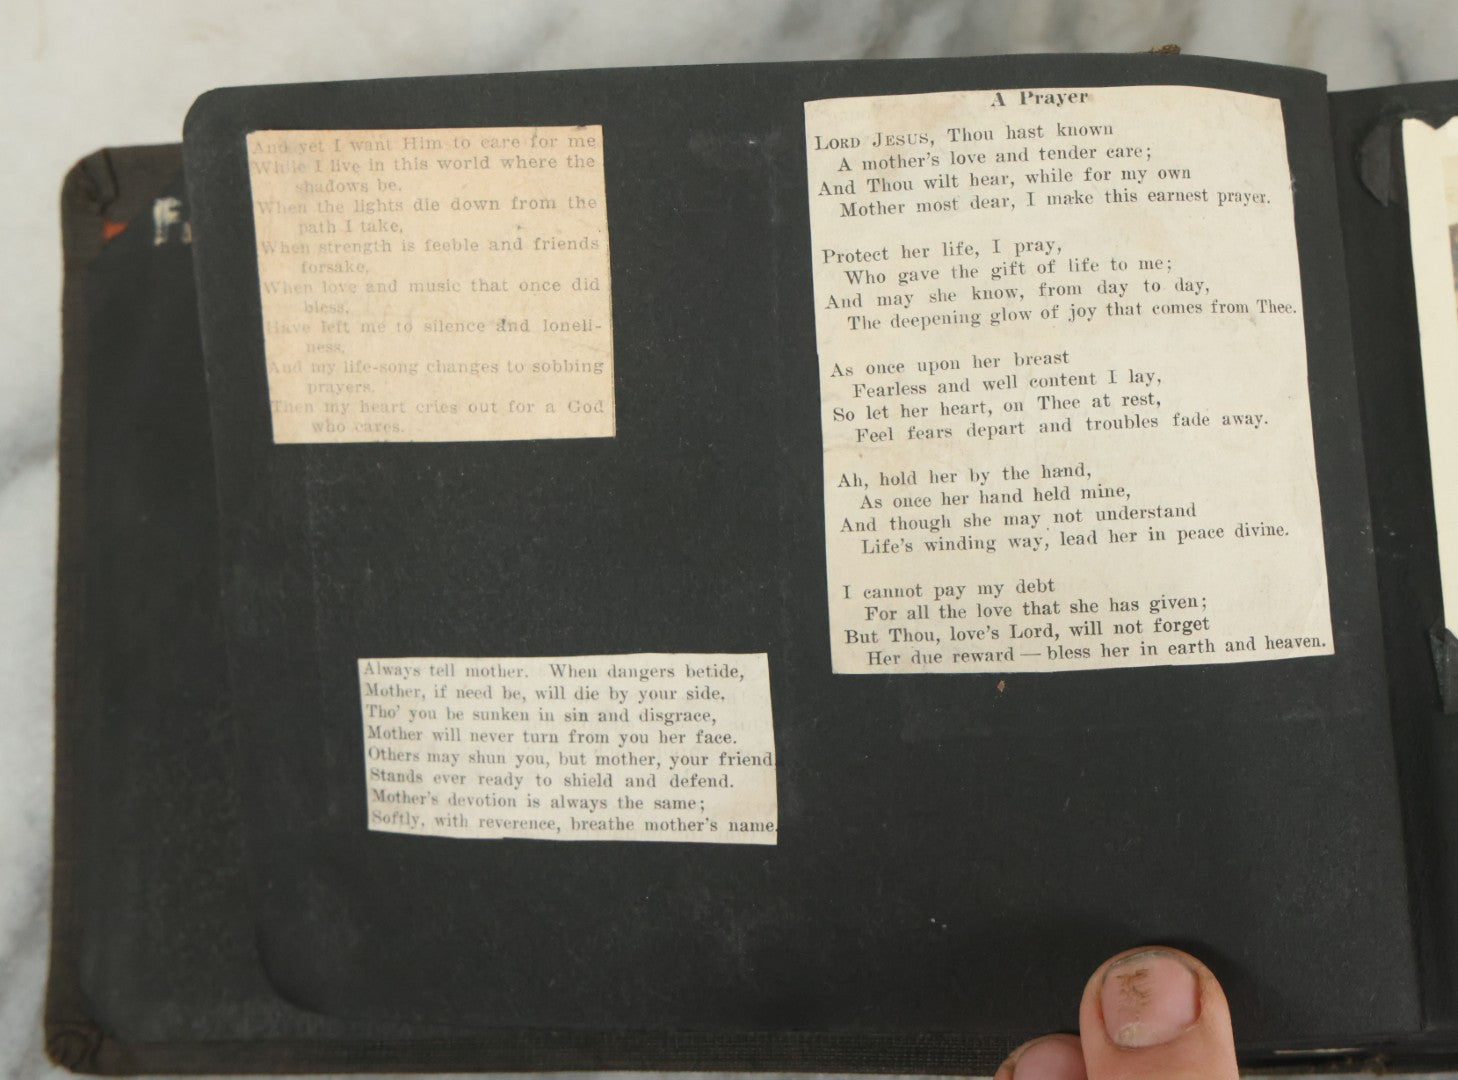 And yet I want Him to care for me
While I live in this world where the
shadows be.
When the lights die down from the
path I take,
When strength is feeble and friends
forsake,
When love and music that once did
bless,
Have left me to silence and loneli-
ness,
And my life-song changes to sobbing
prayers,
Then my heart cries out for a God
who cares.
Always tell mother. When dangers betide,
Mother, if need be, will die by your side,
Tho' you be sunken in sin and disgrace,
Mother will never turn from you her face.
Others may shun you, but mother, your friend
Stands ever ready to shield and defend.
Mother's devotion is always the same;
Softly, with reverence, breathe mother's name.
A Prayer
LORD JESUS, Thou hast known
A mother's love and tender care;
And Thou wilt hear, while for my own
Mother most dear, I make this earnest prayer.
Protect her life, I pray,
Who gave the gift of life to me;
And may she know, from day to day,
The deepening glow of joy that comes from Thee.
As once upon her breast
Fearless and well content I lay,
So let her heart, on Thee at rest,
Feel fears depart and troubles fade away.
Ah, hold her by the hand,
As once her hand held mine,
And though she may not understand
Life's winding way, lead her in peace divine.
I cannot pay my debt
For all the love that she has given;
But Thou, love's Lord, will not forget
Her due reward — bless her in earth and heaven.